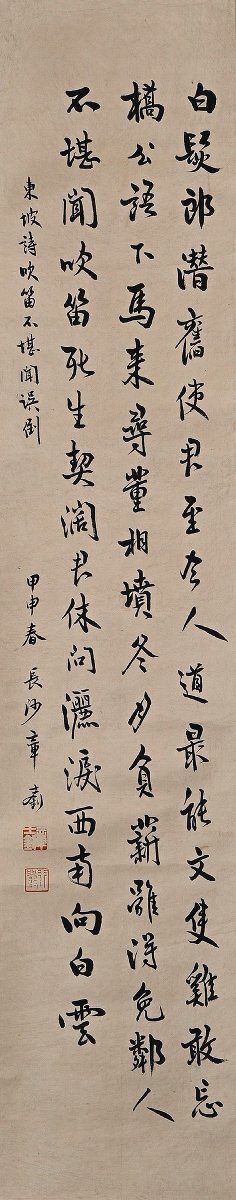 白髮郎潛舊使君至今人道最能文隻雞敢忘
橋公語下馬来尋董相墳冬月負薪雖得免鄰人
不堪聞吹笛死生契闊君休問灑淚西南向白雲
東坡詩吹笛不堪聞誤倒
甲申春 長沙章